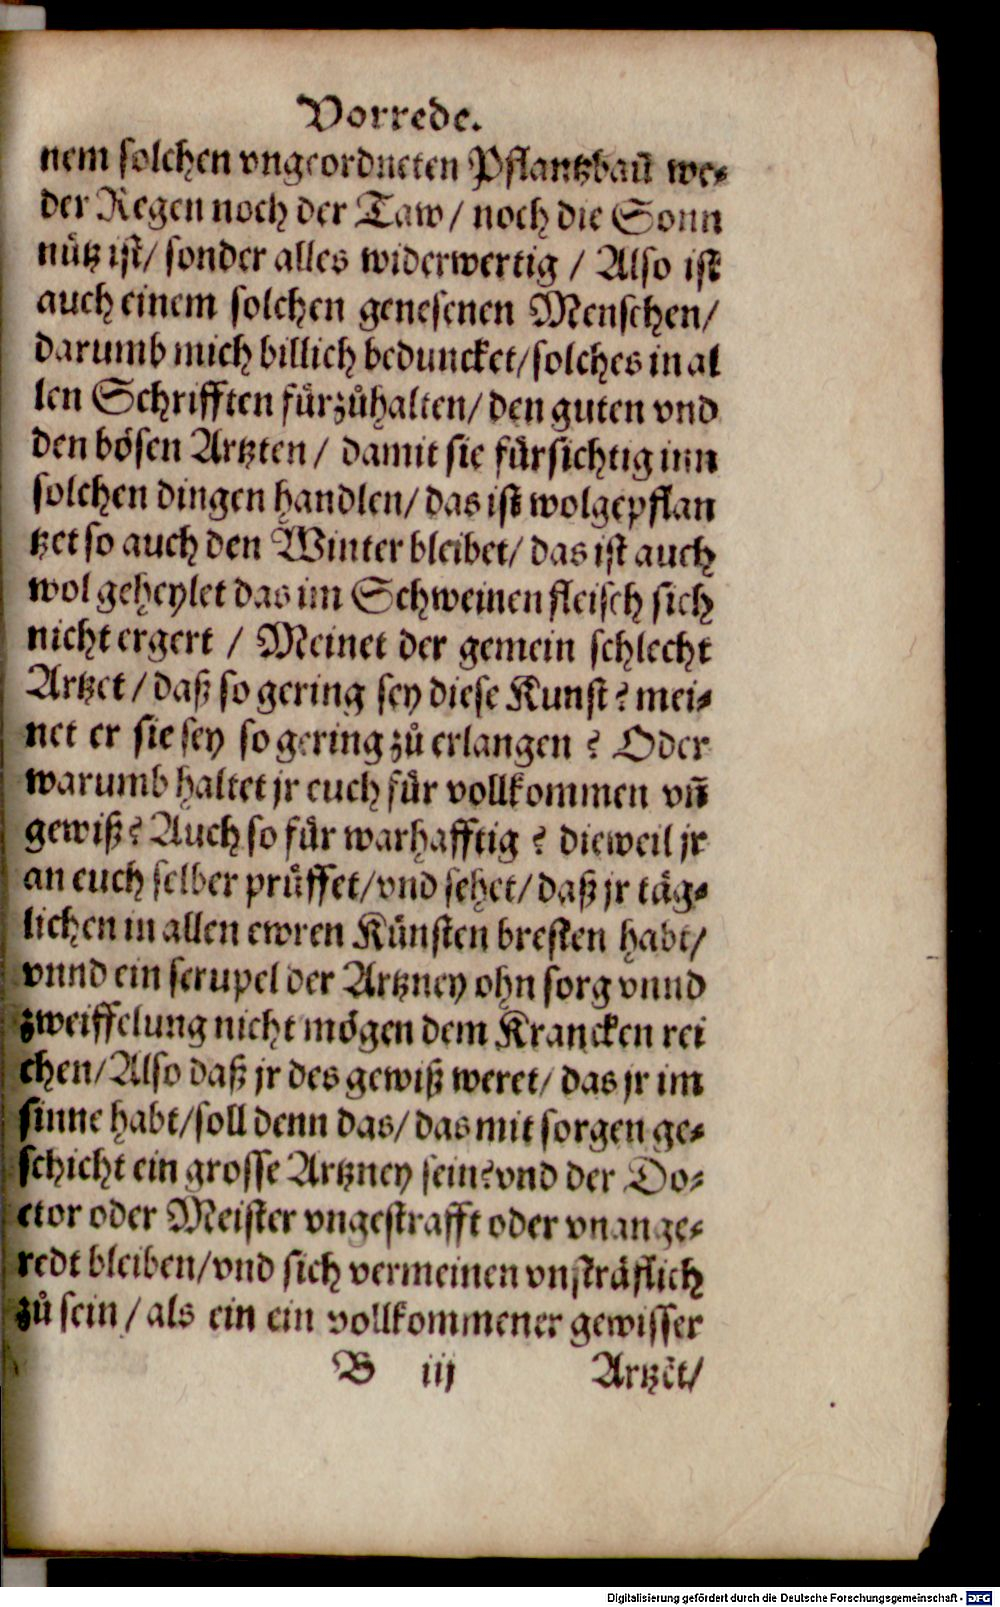 Vorrede.
nem solchen vngeordneten Pflantzbaũ we⸗
der Regen noch der Taw / noch die Sonn
nuͤtz ist/ sonder alles widerwertig / Also ist
auch einem solchen genesenen Menschen/
darumb mich billich beduncket/ solches in al
len Schrifften fuͤrzuͦhalten/ den guten vnd
den boͤsen Artzten / damit sie fuͤrsichtig inn
solchen dingen handlen/ das ist wolgepflan
tzet so auch den Winter bleibet/ das ist auch
wol geheylet das im Schweinen fleisch sich
nicht ergert / Meinet der gemein schlecht
Artzet / daß so gering sey diese Kunst? mei⸗
net er sie sey so gering zuͦ erlangen ? Oder
warumb haltet jr euch fuͤr vollkommen vñ
gewiß? Auch so fuͤr warhafftig ? dieweil jr
an euch selber pruͤffet/ vnd sehet/ daß jr taͤg⸗
lichen in allen ewren Kuͤnsten bresten habt/
vnnd ein scrupel der Artzney ohn sorg vnnd
zweiffelung nicht moͤgen dem Krancken rei
chen/ Also daß jr des gewiß weret/ das jr im
sinne habt/ soll denn das/ das mit sorgen ge⸗
schicht ein grosse Artzney sein? vnd der Do⸗
ctor oder Meister vngestrafft oder vnange⸗
redt bleiben/ vnd sich vermeinen vnstraͤflich
zuͦ sein / als ein ein vollkommener gewisser
B iij Artzet/
Digitalisierung gefördert durch die Deutsche Forschungsgemeinschaft - DFG